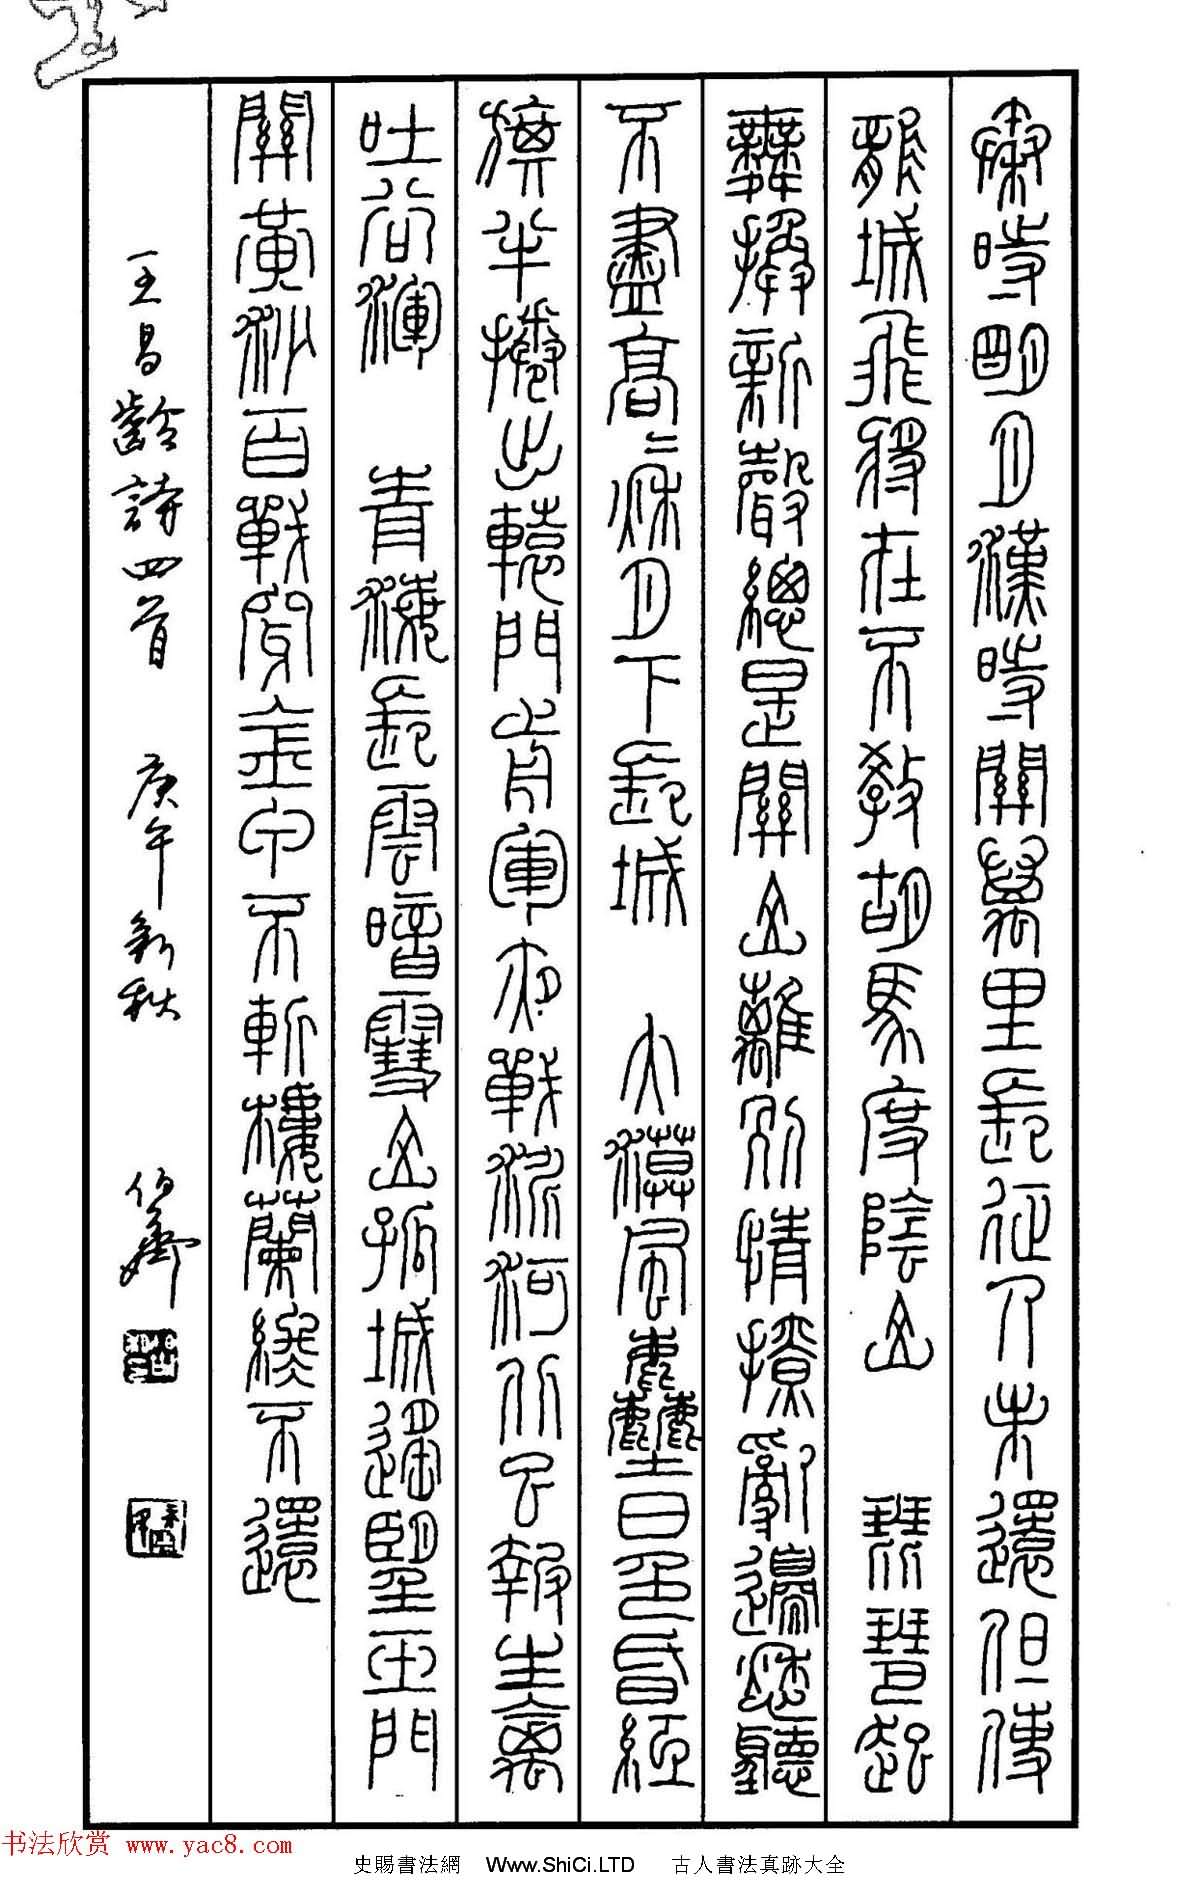 秦時明月漢時關萬里長征人未還但使
龍城飛將在不教胡馬度陰山 琵琶起
舞換新聲總是關山離別情撩亂邊愁聽
不盡高=秋月下長城 大漠風塵日色昏紅
旗半捲出轅門前軍夜戰洮河北已報生禽
吐谷渾 青海長雲暗雪山孤城遙望玉門
關黃沙百戰穿金甲不斬樓蘭終不還
王昌齡詩四首 庚午新秋 伯
书法欣赏 www.yac8.com
史賜書法網 Www.ShiCi.LTD 古人書法真跡大全